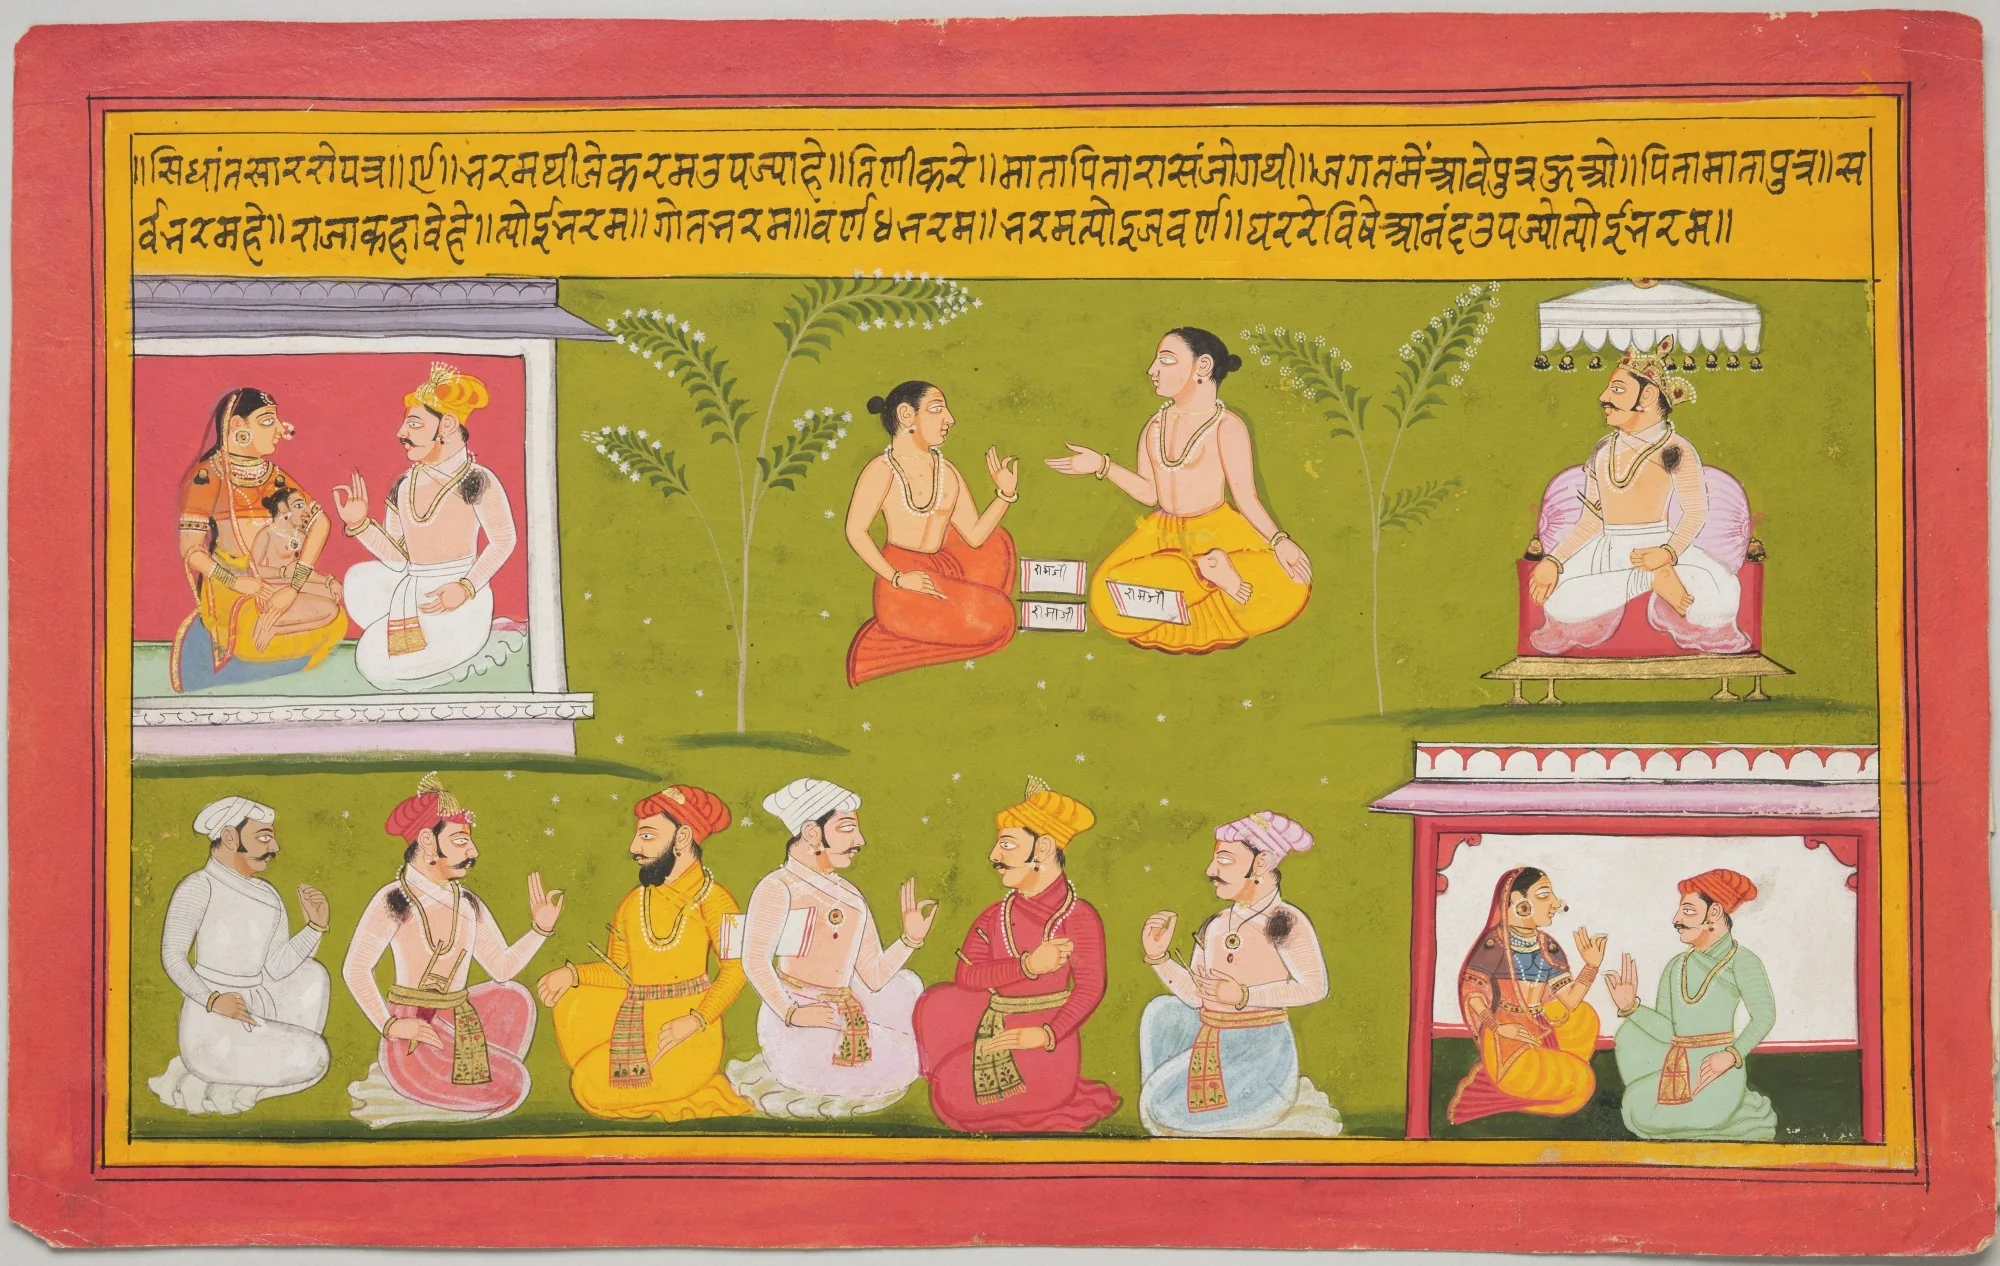 ॥सिधांतसाररोपत्र॥र्ण॥भरमथीजेकरमउपज्याहे॥तिणीकरे॥मातापितारासंजोगथी॥जगतमेंआवेपुत्रहुओ॥पितामातापुत्र॥स
र्वभरमहे॥राजाकहावेहे॥त्योईभरम॥गोतभरम॥वर्णधभरम॥भरमत्योइजवर्ण॥घररेविषेआनंदउपज्योत्योईभरम॥
रामजी
रामाजी
रामजी